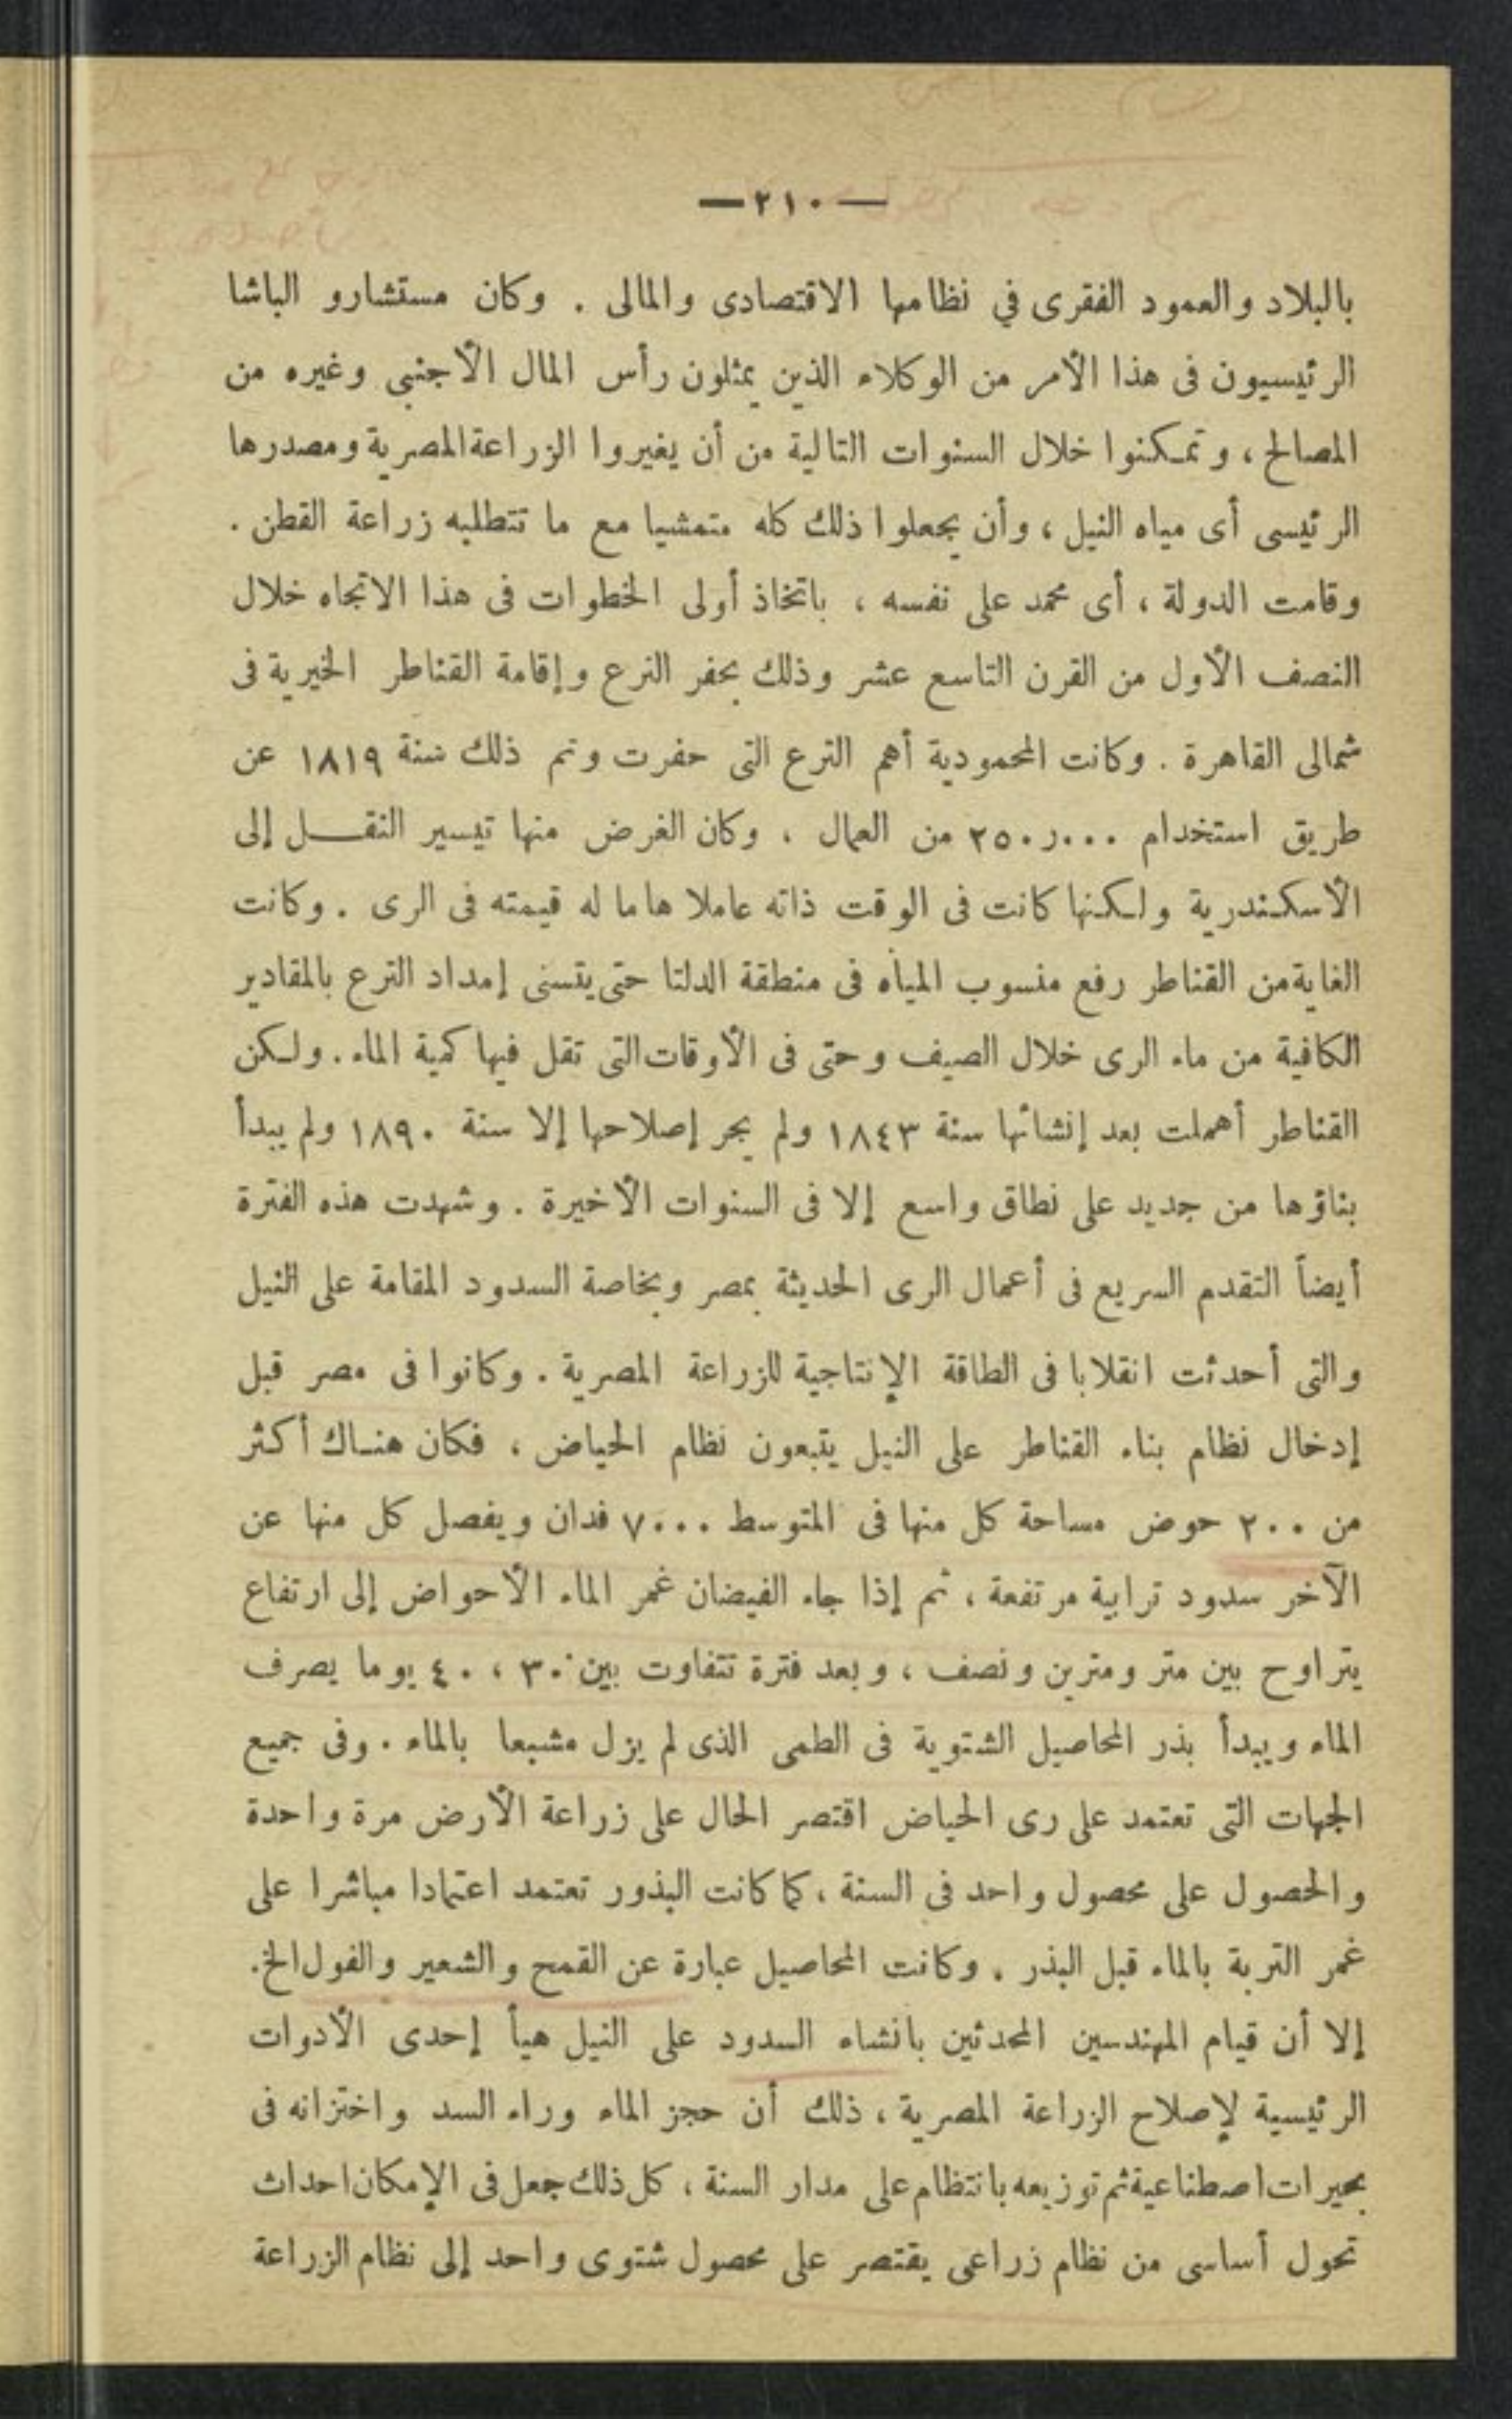 — ٢١٠ —
بالبلاد والعمود الفقرى في نظامها الاقتصادى والمالى . وكان مستشارو الباشا
الرئيسيون فى هذا الأمر من الوكلاء الذين يمثلون رأس المال الأجنبى وغيره من
المصالح ، وتمكنوا خلال السنوات التالية من أن يغيروا الزراعة المصرية ومصدرها
الرئيسى أى مياه النيل ، وأن يجعلوا ذلك كله متمشيا مع ما تتطلبه زراعة القطن .
وقامت الدولة ، أى محمد على نفسه ، باتخاذ أولى الخطوات فى هذا الاتجاه خلال
النصف الأول من القرن التاسع عشر وذلك بحفر الترع وإقامة القناطر الخيرية فى
شمالى القاهرة . وكانت المحمودية أهم الترع التى حفرت وتم ذلك سنة ١٨١٩ عن
طريق استخدام ٢٥٠ر٠٠٠ من العمال ، وكان الغرض منها تيسير النقل إلى
الأسكندرية ولكنها كانت فى الوقت ذاته عاملا هاما له قيمته فى الرى . وكانت
الغاية من القناطر رفع منسوب المياه فى منطقة الدلتا حتى يتسنى إمداد الترع بالمقادير
الكافية من ماء الرى خلال الصيف وحتى فى الأوقات التى تقل فيها كمية الماء . ولكن
القناطر أهملت بعد إنشائها سنة ١٨٤٣ ولم يجر إصلاحها إلا سنة ١٨٩٠ ولم يبدأ
بناؤها من جديد على نطاق واسع إلا فى السنوات الأخيرة . وشهدت هذه الفترة
أيضاً التقدم السريع فى أعمال الرى الحديثة بمصر وبخاصة السدود المقامة على النيل
والتى أحدثت انقلابا فى الطاقة الإنتاجية للزراعة المصرية . وكانوا فى مصر قبل
إدخال نظام بناء القناطر على النيل يتبعون نظام الحياض ، فكان هناك أكثر
من ٢٠٠ حوض مساحة كل منها فى المتوسط ٧٠٠٠ فدان ويفصل كل منها عن
الآخر سدود ترابية مرتفعة ، ثم إذا جاء الفيضان غمر الماء الأحواض إلى ارتفاع
يتراوح بين متر ومترين ونصف ، وبعد فترة تتفاوت بين ٣٠ ، ٤٠ يوما يصرف
الماء ويبدأ بذر المحاصيل الشتوية فى الطمى الذى لم يزل مشبعا بالماء . وفى جميع
الجهات التى تعتمد على رى الحياض اقتصر الحال على زراعة الأرض مرة واحدة
والحصول على محصول واحد فى السنة ، كما كانت البذور تعتمد اعتمادا مباشرا على
غمر التربة بالماء قبل البذر . وكانت المحاصيل عبارة عن القمح والشعير والفول الخ.
إلا أن قيام المهندسين المحدثين بانشاء السدود على النيل هيأ إحدى الأدوات
الرئيسية لإصلاح الزراعة المصرية ، ذلك أن حجز الماء وراء السد واختزانه فى
بحيرات اصطناعية ثم توزيعه بانتظام على مدار السنة ، كل ذلك جعل فى الإمكان احداث
تحول أساسى من نظام زراعى يقتصر على محصول شتوى واحد إلى نظام الزراعة